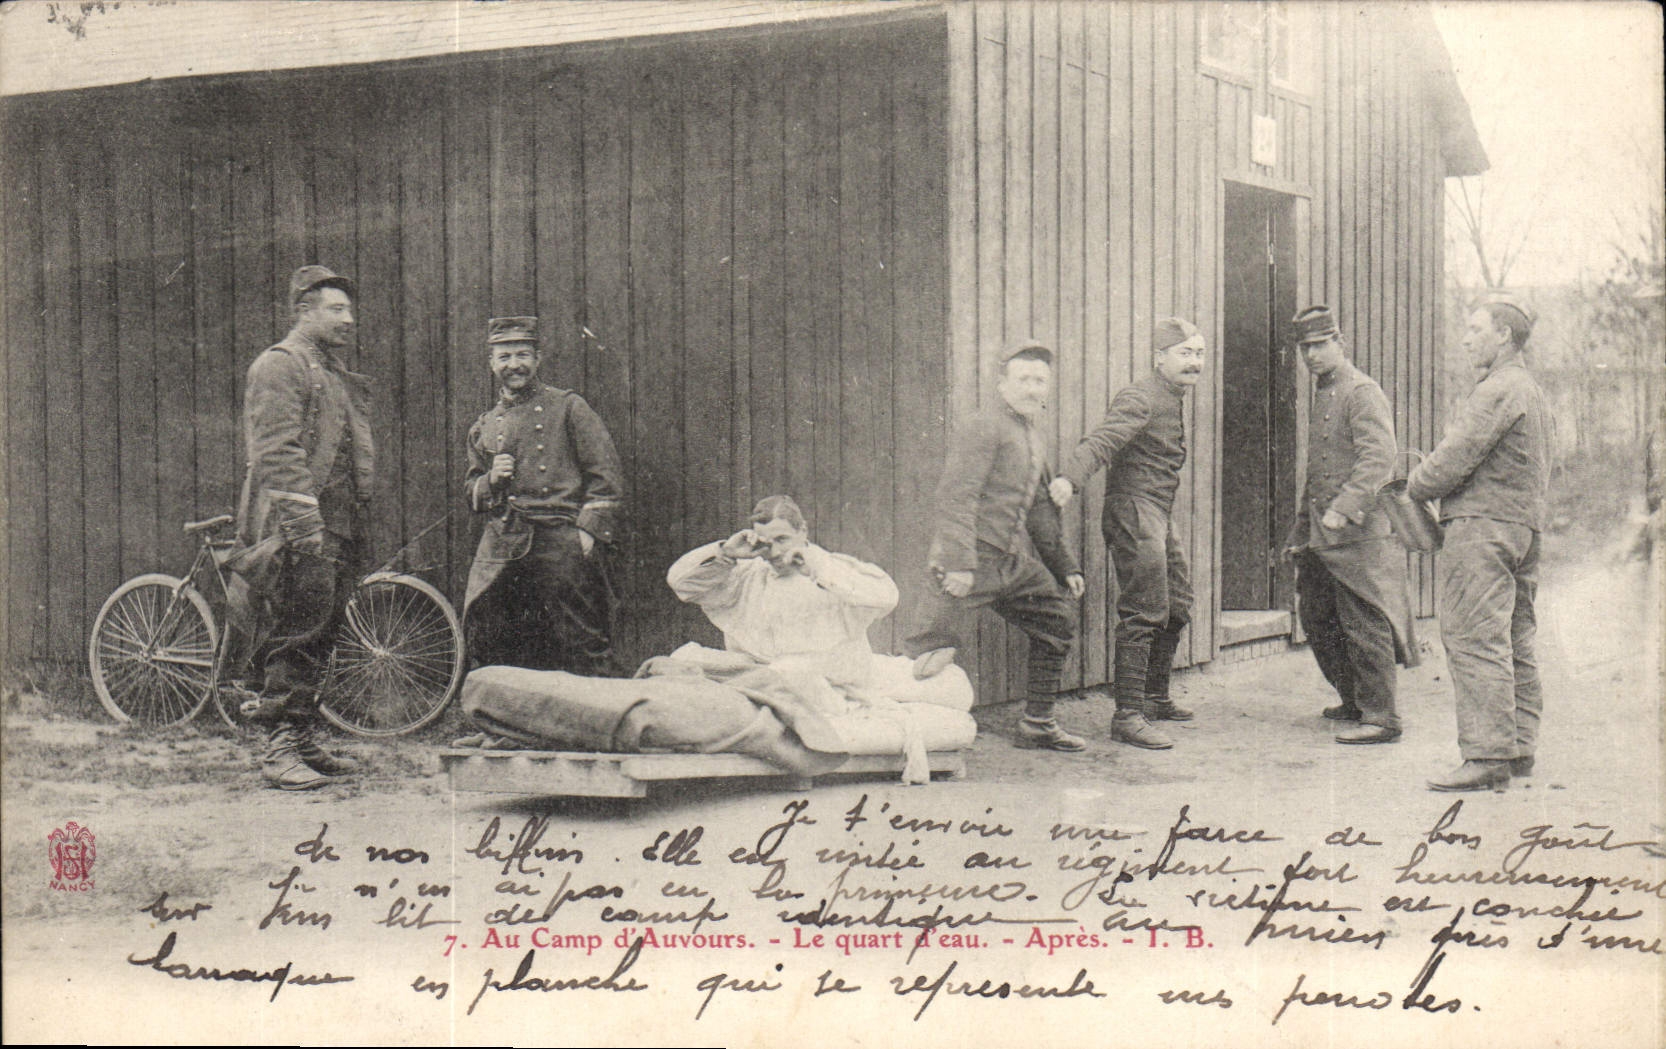 Je t'envoie une farce de bon goût
de nos biffins. Elle est usitée au régiment fort heureusement
je n'en ai pas eu la primeure. La victime est couchée
sur un lit de camp identique au mien près d'une
baraque en planche qui se represente mes
7. Au Camp d'Auvours. - Le quart d'eau. - Après. - I. B.
NANCY